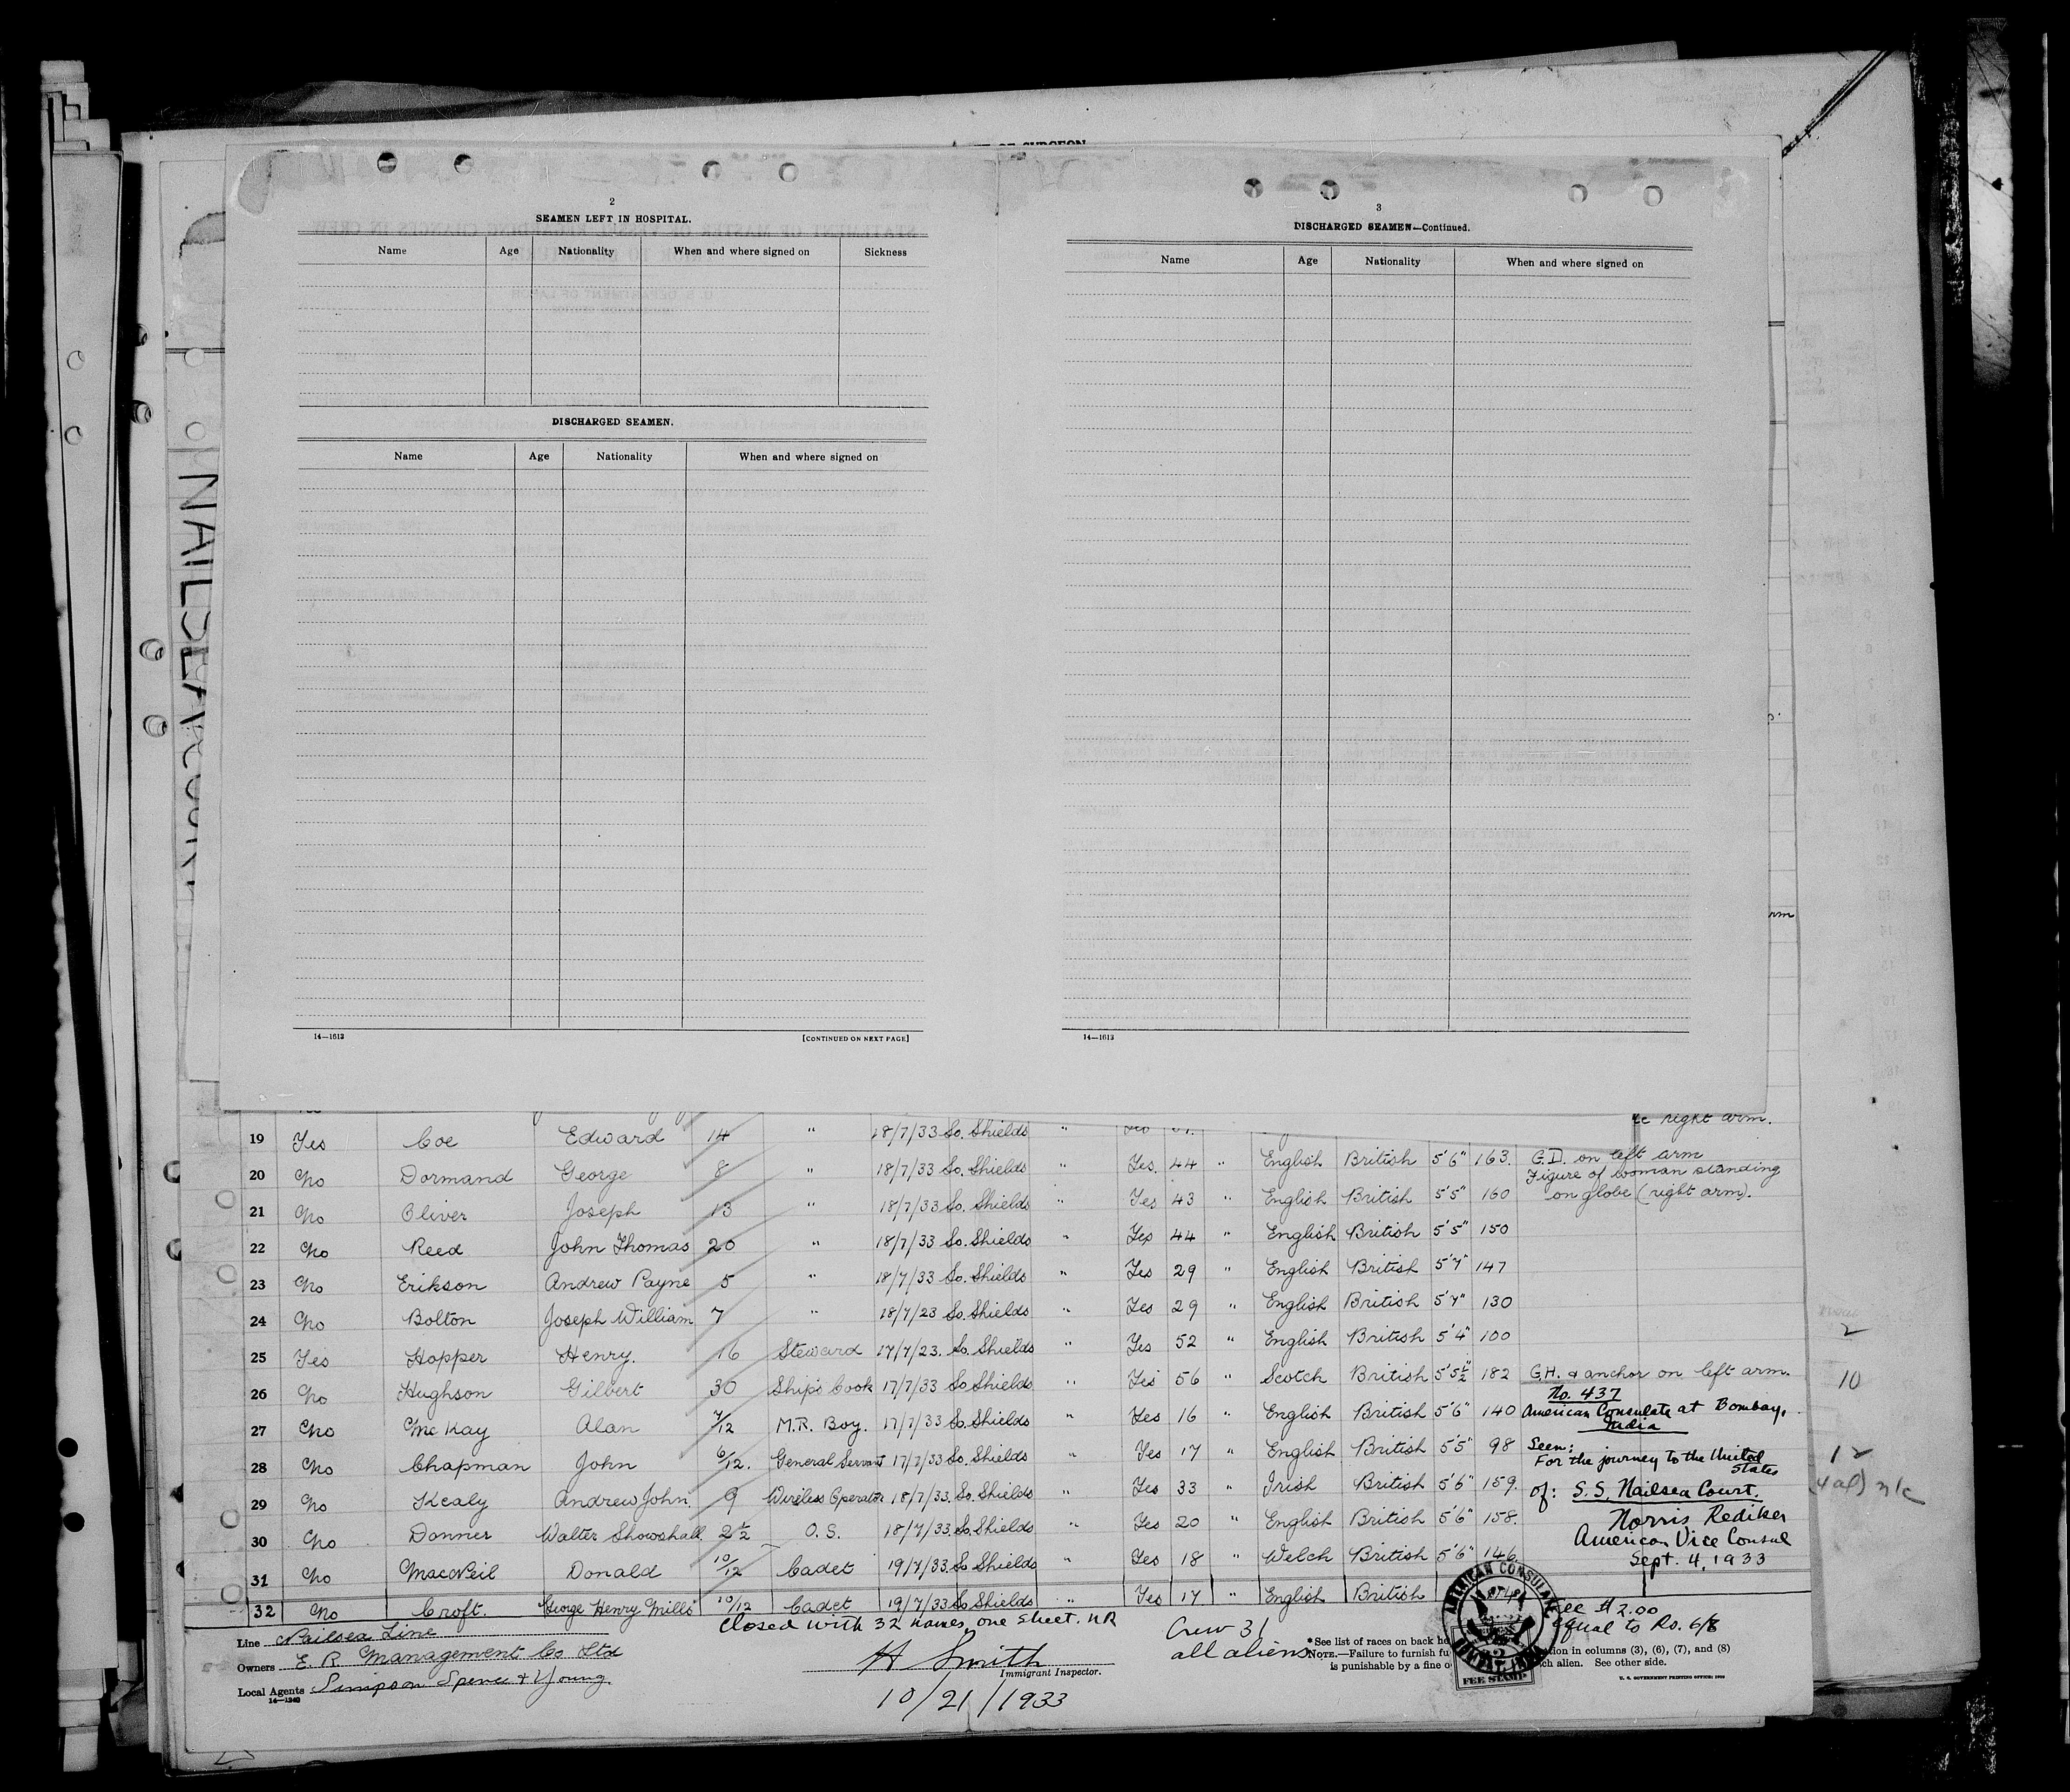 OF SURGEON
NAILSEA COURT
2
SEAMEN LEFT IN HOSPITAL.
Name Age Nationality When and where signed on Sickness
DISCHARGED SEAMEN.
Name Age Nationality When and where signed on
14—1613 [CONTINUED ON NEXT PAGE]
3
DISCHARGED SEAMEN—Continued.
Name Age Nationality When and where signed on
14—1613
arm
right arm.
19 Yes Coe Edward 14 " 18/7/33 So. Shields "
20 No Dormand George 8 " 18/7/33 So. Shields " Yes. 44 " English British 5'6" 163. G.D. on left arm
Figure of woman standing
on globe (right arm).
21 No Oliver Joseph 13 " 18/7/33 So. Shields " Yes 43 " English British 5'5" 160
22 No Reed John Thomas 20 " 18/7/33 So. Shields " Yes 44 " English British 5'5" 150
23 No Erikson Andrew Payne 5 " 18/7/33 So. Shields " Yes 29 " English British 5'7" 147
24 No Bolton Joseph William 7 " 18/7/23 So. Shields " Yes 29 " English British 5'7" 130
25 Yes Hopper Henry. 16 Steward 17/7/23. So. Shields " Yes 52 " English British 5'4" 100
26 No Hughson Gilbert 30 Ship's Cook 17/7/33 So Shields " Yes 56 " Scotch British 5'5½" 182 G.H. & anchor on left arm.
27 No McKay Alan 7/12 M.R. Boy. 17/7/33 So. Shields " Yes 16 " English British 5'6" 140
28 No Chapman John 6/12. General Servant 17/7/33 So. Shields " Yes 17 " English British 5'5" 98
29 No Kealy Andrew John. 9 Wireless Operator 18/7/33. So. Shields " Yes 33 " Irish British 5'6" 159.
30 No Donner Walter 2½ O.S. 18/7/33. So. Shields " Yes 20 " English British 5'6" 158.
31 No MacNeil Donald 10/12 Cadet 19/7/33. So Shields " Yes 18 " Welch British 5'6" 146.
32 No Croft. George Henry Mills 10/12 Cadet 19/7/33 So Shields " Yes 17 " English British
No. 437
American Consulate at Bombay,
India
Seen:
For the journey to the United
States
of: S.S. Nailsea Court.
Norris Rediker
American Vice Consul
Sept. 4, 1933
2
10
12
(4 al) n/c
AMERICAN CONSULATE
BOMBAY, INDIA
FEE STAMP
Fee $2.00
equal to Rs. 6/8
Closed with 32 names, one sheet. NR
Crew 31
all aliens
Line Nailsea Line
Owners E. R. Management Co Ltd
Local Agents Simpson Spence & Young
14—1240
H Smith
Immigrant Inspector.
10/21/1933
*See list of races on back he
NOTE.—Failure to furnish fu tion in columns (3), (6), (7), and (8)
is punishable by a fine o ch alien. See other side.
U. S. GOVERNMENT PRINTING OFFICE: 1932